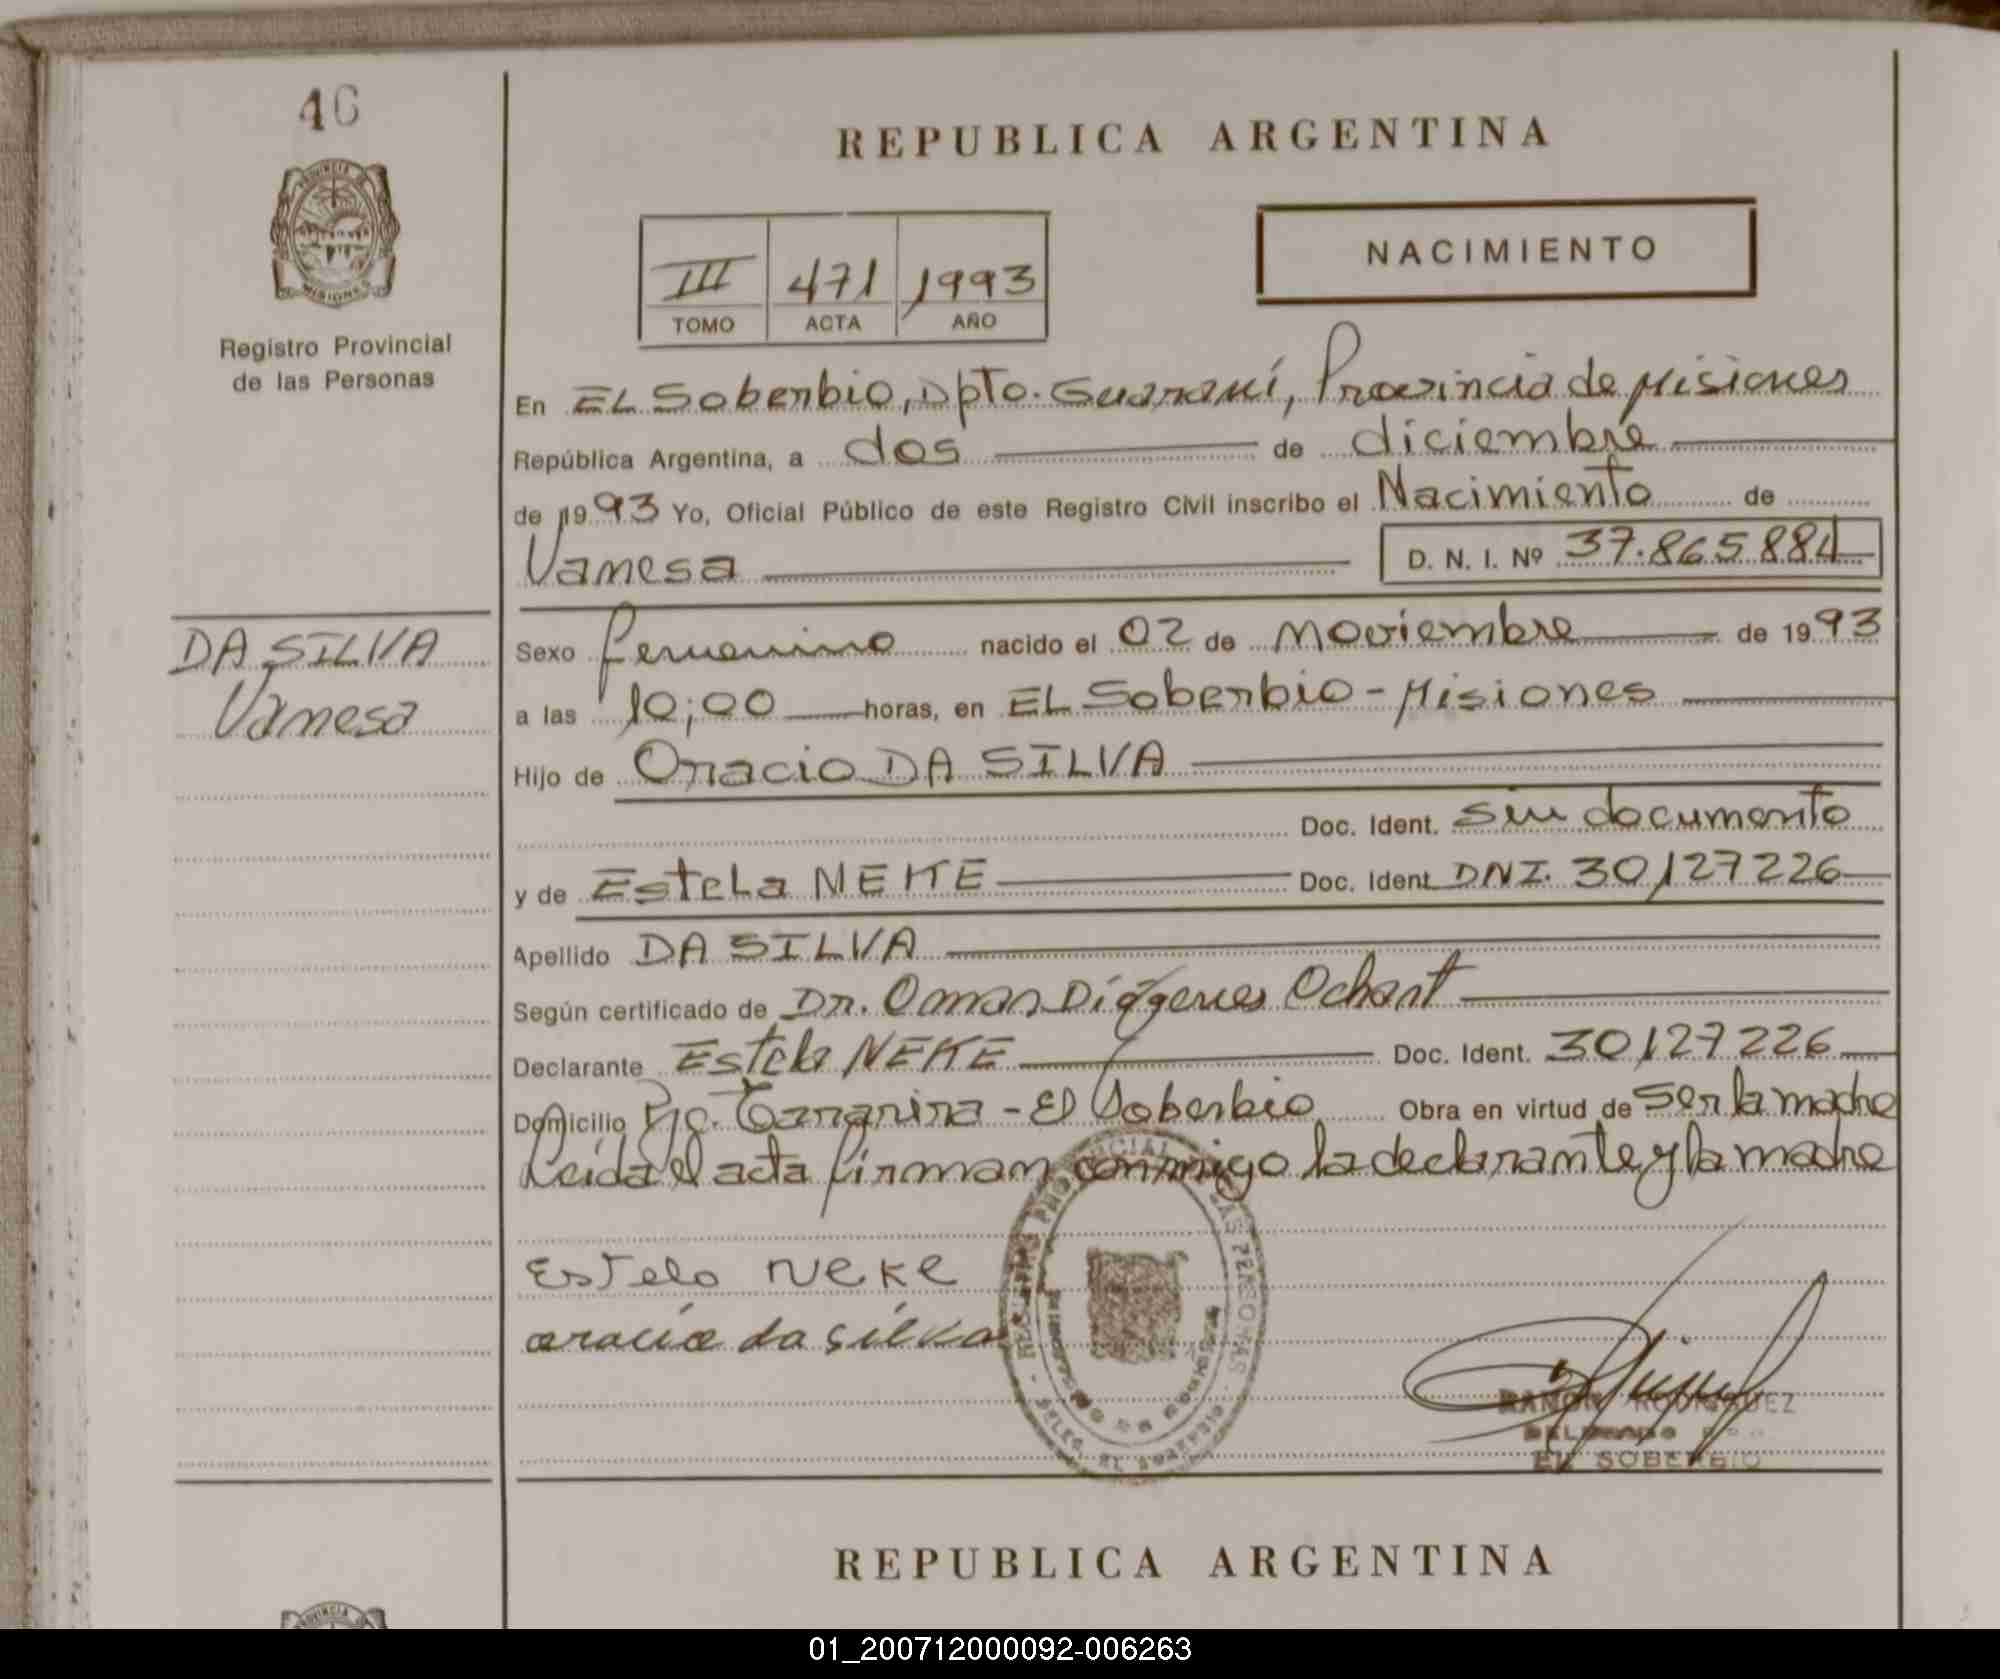 46
PROVINCIA DE
MISIONES
Registro Provincial
de las Personas
REPUBLICA ARGENTINA
III 471 1993
TOMO ACTA AÑO
NACIMIENTO
En EL Soberbio, Dpto. Guaraní, Provincia de Misiones
República Argentina, a dos de diciembre
de 1993 Yo, Oficial Público de este Registro Civil inscribo el Nacimiento de
Vanesa D. N. I. Nº 37.865.884
DA SILVA
Vanesa
Sexo femenino nacido el 02 de noviembre de 1993
a las 10;00 horas, en EL Soberbio - Misiones
Hijo de Oracio DA SILVA
Doc. Ident. sin documento
y de Estela NEKE Doc. Ident. DNI. 30127226
Apellido DA SILVA
Según certificado de Dr. Omar Diógenes Ochart
Declarante Estela NEKE Doc. Ident. 30127226
Domicilio Pje. Tararira - El Soberbio Obra en virtud de ser la madre
Leída el acta firman conmigo la declarante y la madre
Estelo neke
oracio da silva
REGISTRO PROVINCIAL DE LAS PERSONAS
DELEG. EL SOBERBIO
RAMON RODRIGUEZ
DELEGADO
EL SOBERBIO
REPUBLICA ARGENTINA
PROVINCIA
01_200712000092-006263